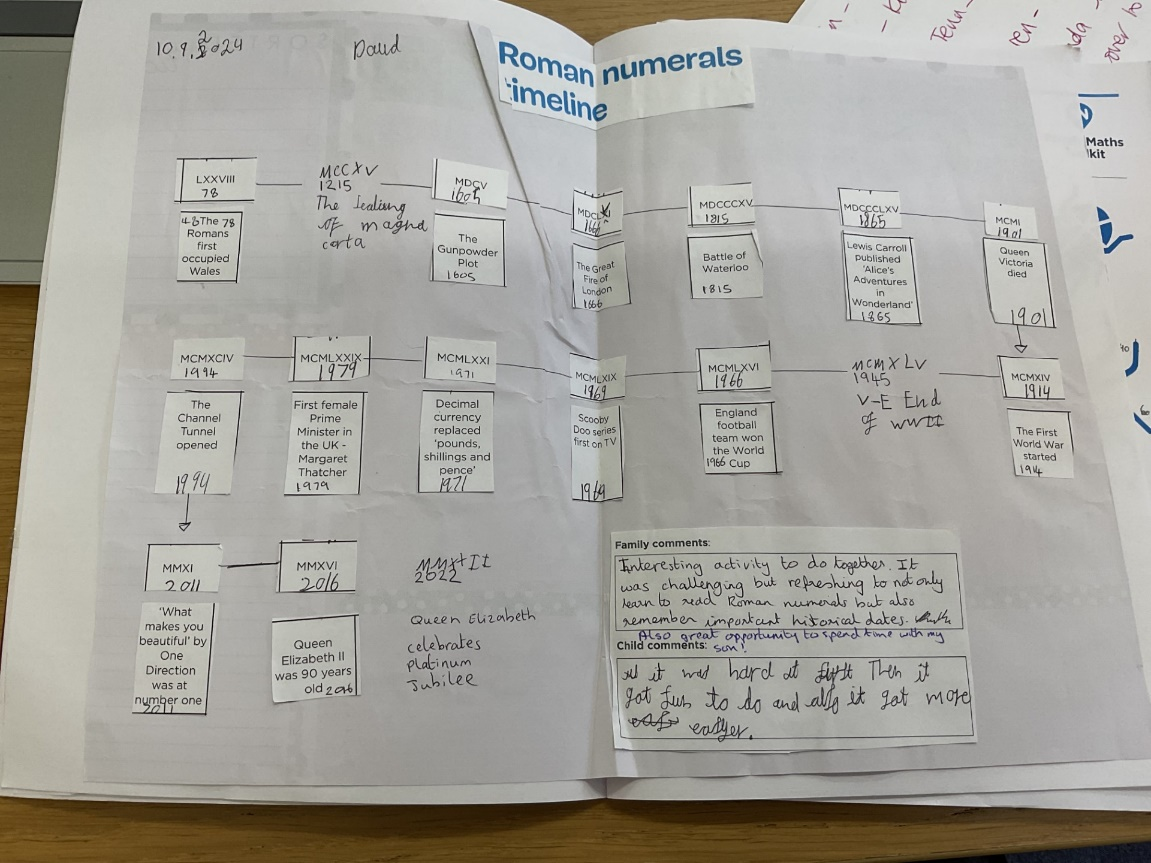 10.9.2024
Roman numerals
timeline
LXXVIII
78
48 The 78
Romans
first
occupied
Wales
MCCXV
1215
The
of magna
carta
MDCV
1605
The
Gunpowder
Plot
1605
The Great
Fire of
London
1666
MDCCCXV
1815
Battle of
Waterloo
1815
MDCCCLXV
1865
Lewis Carroll
published
'Alice's
Adventures
in
Wonderland'
1865
MCMI
1901
Queen
Victoria
died
1901
MCMXCIV
1994
The
Channel
Tunnel
opened
1994
MCMLXXIX
1979
First female
Prime
Minister in
the UK -
Margaret
Thatcher
1979
MCMLXXI
1971
Decimal
currency
replaced
'pounds,
shillings and
pence'
1971
MCMLXIX
1969
Scooby
Doo series
first on TV
1969
MCMLXVI
1966
England
football
team won
the World
1966 Cup
MCMXLV
1945
V-E End
of WWII
MCMXIV
1914
The First
World War
started
1914
MMXI
2011
'What
makes you
beautiful' by
One
Direction
was at
number one
2011
MMXVI
2016
Queen
Elizabeth II
was 90 years
old 2016
2022
Queen Elizabeth
celebrates
platinum
Jubilee
Family comments:
Interesting activity to do together. It
was challenging but refreshing to not only
learn to read Roman numerals but also
remember important historical dates.
Also great opportunity to spend time with my
son!
Child comments:
it was hard at Then it
got fun to do and it got more
Maths
kit
over to